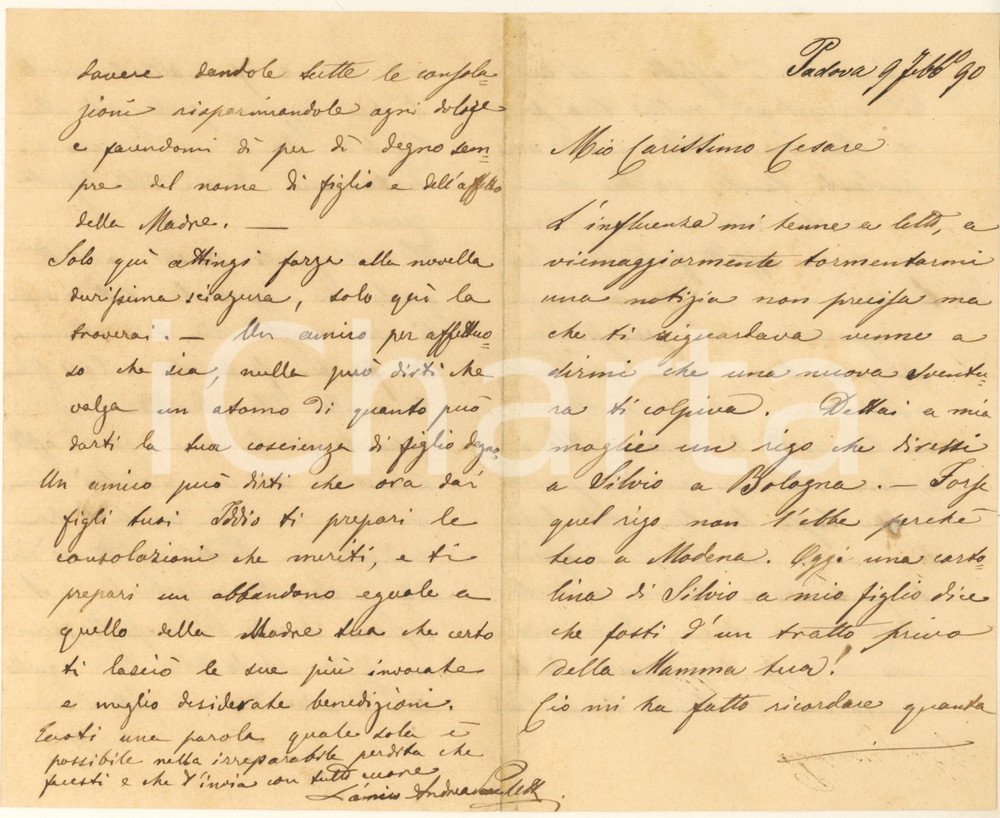 Padova 9 Febb° 90
Mio Carissimo Cesare
L'influenza mi tenne a letto, a
viemaggiormente tormentarmi
una notizia non precisa ma
che ti riguardava venne a
dirmi che una nuova sventu=
ra ti colpiva. Dettai a mia
moglie un rigo che diressi
a Silvio a Bologna. — Forse
quel rigo non l'ebbe perchè
teco a Modena. Oggi una carto=
lina di Silvio a mio figlio dice
che fosti d'un tratto privo
della Mamma tua!
Ciò mi ha fatto ricordare quanta
davere dandole tutte le consola=
zioni risparmiandole ogni dolore
e facendomi di per dì degno sem=
pre del nome di figlio e dell'affetto
della Madre. —
Solo quì attingi forza alla novella
durissima sciagura, solo quì la
troverai. — Un amico per affettuo=
so che sia, nulla può dirti che
valga un atomo di quanto può
darti la tua coscienza di figlio degno.
Un amico può dirti che ora dai
figli tuoi Iddio ti prepari le
consolazioni che meriti, e ti
prepari un abbandono eguale a
quello della Madre tua che certo
ti lasciò le sue più invocate
e meglio desiderate benedizioni.
Eccoti una parola quale sola è
possibile nella irreparabile perdita che
facesti e che t'invia con tutto cuore
L'amico Andrea
iCharta